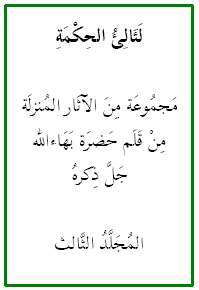 لَئَالِئُ الحِكْمَةِ
مَجمُوعَة مِنَ الآثَار المُنزلَة
مِنْ قَلَم حَضرَة بَهَاءالله
جَلَّ ذِكرهُ
المُجَلَّدُ الثَّالث